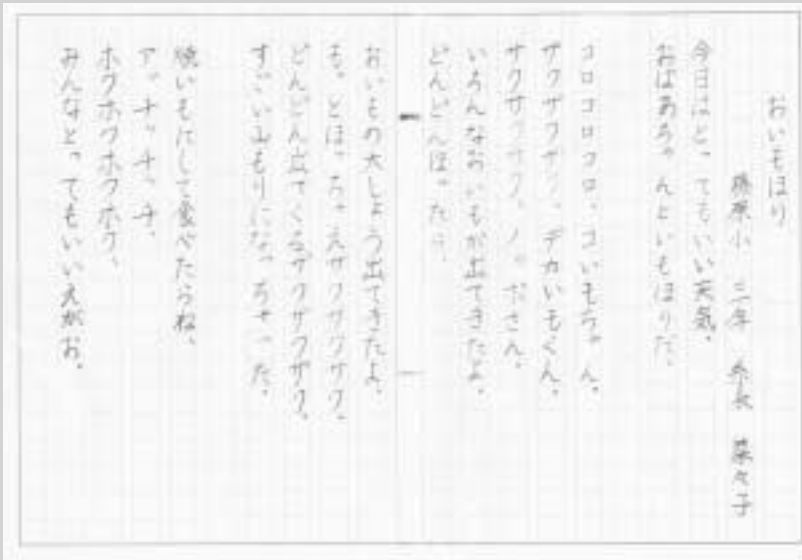 おいもほり
藤原小 三年 糸永 菜々子
今日はとってもいい天気。
おばあちゃんといもほりだ。
コロコロコロ、コいもちゃん。
ザクザクザク、デカいもくん。
サクサクサク、ノッポさん。
いろんなおいもが出てきたよ。
どんどんほったら、
おいもの大しょう出てきたよ。
もっとほっちゃえザクザクザク。
どんどん出てくるザクザクザク。
すごい山もりになっちゃった。
焼いもにして食べたらね、
アッチッチッチ、
ホクホクホクホク、
みんなとってもいいえがお。